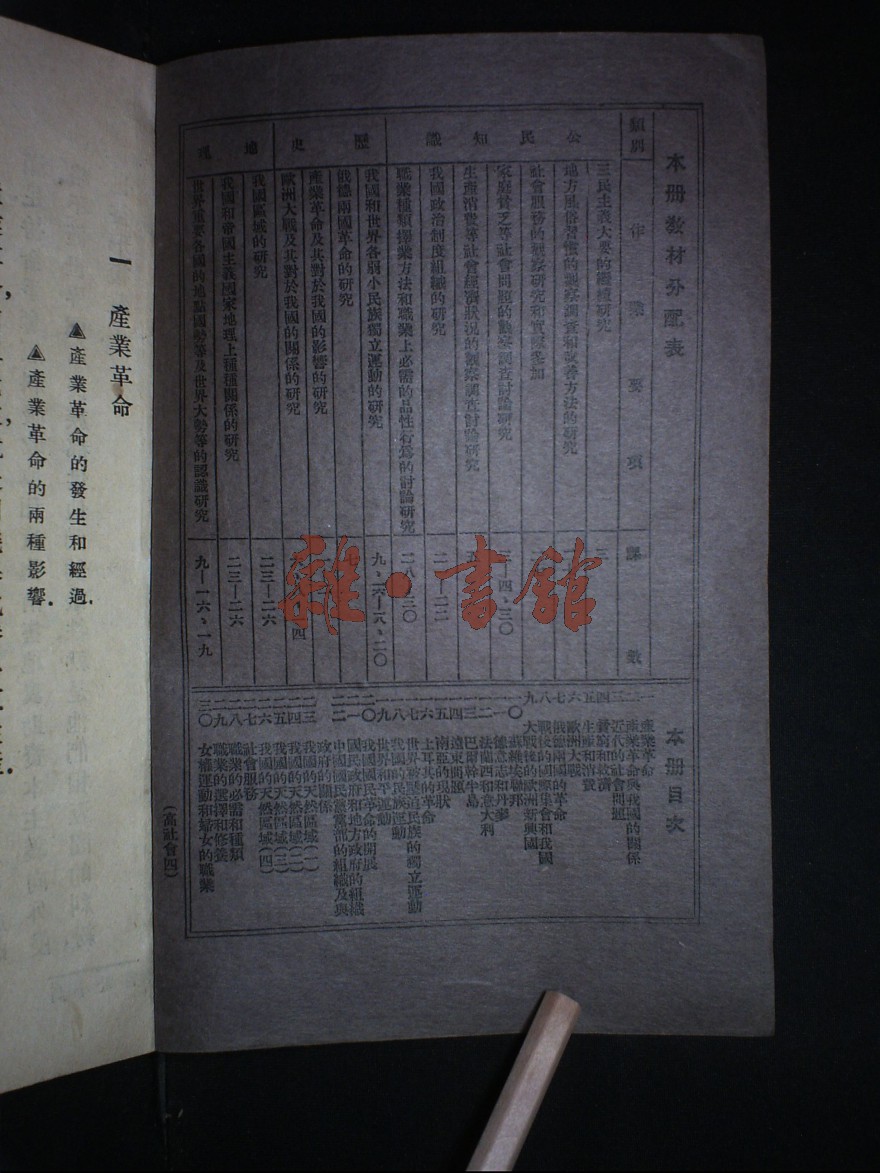 本冊教材分配表
類別
作業要項
課數
公民知識
三民主義大要的繼續研究
地方風俗習慣的觀察調查和改善方法的研究
社會服務的觀察研究和實際參加
家庭貧乏等社會問題的觀察調查討論研究
生產消費等社會經濟狀況的觀察調查討論研究
我國政治制度組織的研究
職業種類擇業方法和職業上必需的品性行為的討論研究
歷史
我國和世界各弱小民族獨立運動的研究
俄德兩國革命的研究
產業革命及其對於我國的影響的研究
歐洲大戰及其對於我國的關係的研究
地理
我國區域的研究
二三—二六
我國和帝國主義國家地理上種種關係的研究
二三—二六
世界重要各國的地點國勢等及世界大勢等的認識研究
九—一六、一九
本冊目次
一 產業革命
二 產業革命與我國的關係
三 近代的社會問題
四 貧窮和救濟
五 生產和消費
六 歐洲大戰
七 俄德兩國的革命
八 戰後的國際集會和我國
九 大戰後的歐洲新興國
一〇 蘇維埃聯邦
一一 德意志和丹麥
一二 法蘭西和意大利
一三 巴爾幹半島
一四 遠東問題
一五 南亞的現狀
一六 土耳其的革命
一七 世界被壓迫民族的獨立運動
一八 我國的民族運動
一九 世界和平運動
二〇 我國國民革命的開展
二一 國民政府和地方政府的組織
二二 中國國民黨黨部的組織及與政府的關係
二三 我國的天然區域(一)
二四 我國的天然區域(二)
二五 我國的天然區域(三)
二六 我國的天然區域(四)
二七 社會服務
二八 職業的必需和種類
二九 職業的選擇和修養
三〇 女權運動和婦女的職業
(高社會四)
雜·書館
一 產業革命
▲產業革命的發生和經過.
▲產業革命的兩種影響.